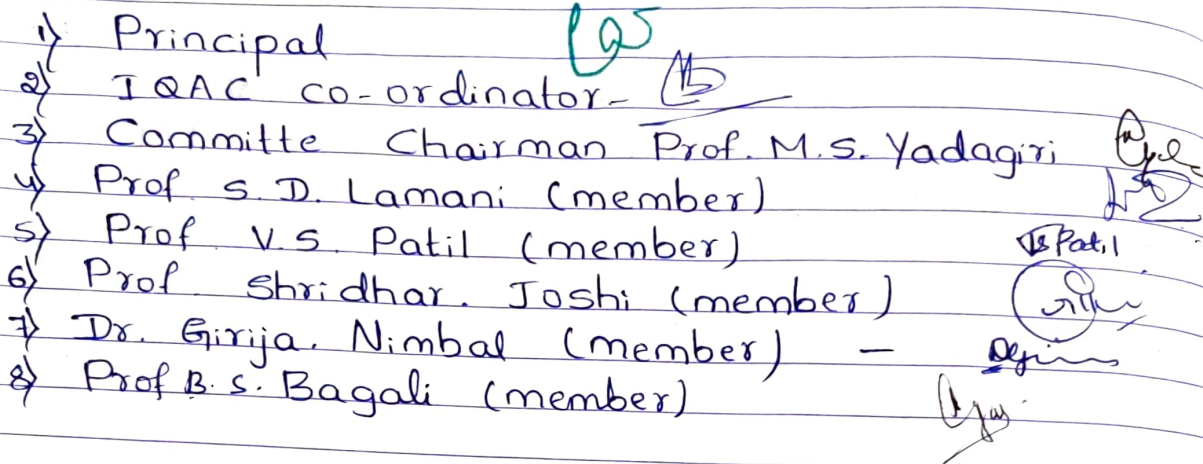 1) Principal
2) IQAC co-ordinator-
3) Committe Chairman Prof. M. S. Yadagiri
4) Prof S. D. Lamani (member)
5) Prof V. S. Patil (member) VS Patil
6) Prof. Shridhar. Joshi (member)
7) Dr. Girija. Nimbal (member) -
8) Prof B. S. Bagali (member)